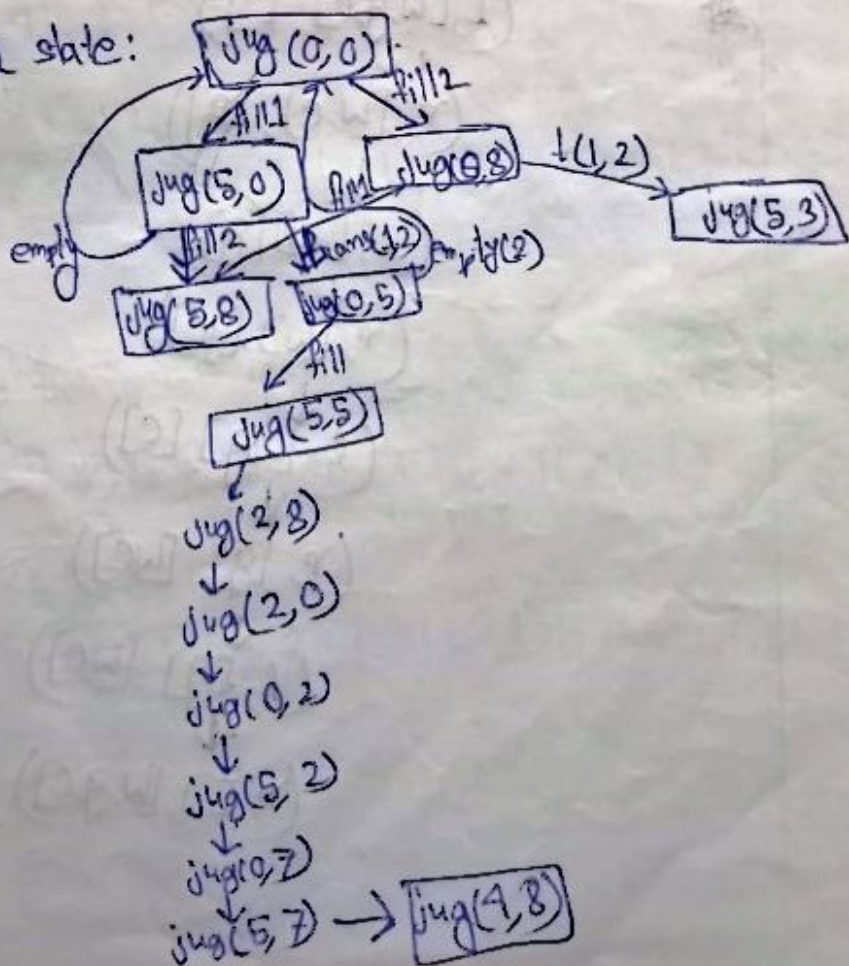 state:
jug (0,0)
fill1
fill2
jug(5,0)
jug(0,8)
t(1,2)
jug(5,3)
empty
fill2
trans(1,2)
empty(2)
jug(5,8)
jug(0,5)
fill
jug(5,5)
jug(2,8)
jug(2,0)
jug(0,2)
jug(5,2)
jug(0,7)
jug(5,7)
jug(4,8)